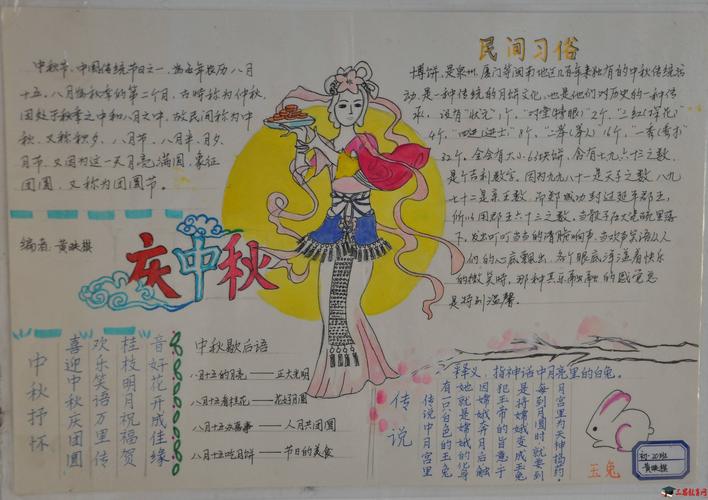 中秋节,中国传统节日之一,为每年农历八月
十五,八月为秋季的第二个月,古时称为仲秋,
因处于秋季之中和八月之中,故民间称为中
秋,又称秋夕、八月节、八月半、月夕、
月节,又因为这一天月亮满圆,象征
团圆,又称为团圆节。
编者:黄映祺
庆中秋
民间习俗
博饼,是泉州、厦门等闽南地区几百年来独有的中秋传统活
动,是一种传统的月饼文化,也是他们对历史的一种传
承,设有“状元”1个,“对堂(榜眼)”2个,“三红(探花)”
4个,“四进(进士)”8个,“二举(举人)”16个,“一秀(秀才)”
32个,全会有大小63块饼,含有七九六十三之数,
是个吉利数字。因为九九八十一是天子之数,八九
七十二是亲王数,而郑成功封过延平郡王,
所以用郡王六十三之数。当骰子在大瓷碗里落
下,发出叮叮当当的清脆响声,当欢声笑语从人
们的心底飘出,各个眼底洋溢着快乐
的微笑时,那种其乐融融的感觉总
是特别温馨。
中秋抒怀
喜迎中秋庆团圆
欢乐笑语万里传
桂枝明月祝福贺
音好花开成佳缘
中秋歇后语
八月十五的月亮——正大光明
八月十五看桂花——花好月圆
八月十五办喜事——人月共团圆
八月十五吃月饼——节日的美食
传说
释义:指神话中月亮里的白兔。
传说中月宫里
有一只白色的玉兔
她就是嫦娥的化身
因嫦娥奔月后触
犯玉帝的旨意于
是将嫦娥变成玉兔
每到月圆时就要到
月宫里为天神捣药
玉兔
初一20班
黄映祺
工男教育网